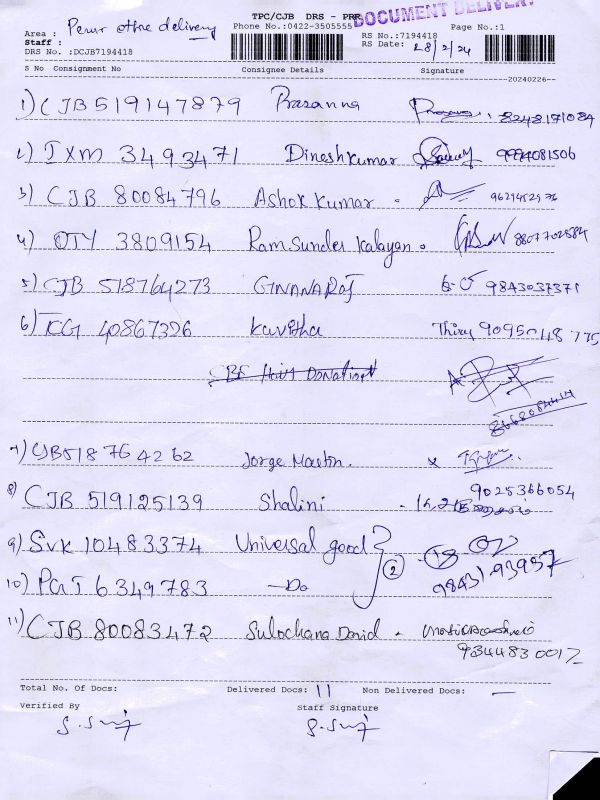 TPC/CJB DRS - PRR
DOCUMENT DELIVERY
Area : Perur office delivery
Phone No.:0422-3505555
Page No.:1
Staff :
RS No.:7194418
DRS No. :DCJB7194418
RS Date: 28/2/24
S No Consignment No Consignee Details Signature
20240226
1) CJB519147879 Prasanna 8248171084
2) IXM 3493471 Dineshkumar 9994081506
3) CJB 80084796 Ashok Kumar
4) OTY 3809154 Ram Sunder Kalayan 8807702584
5) CJB 518764273 GNANARAJ 9843037371
6) TCG 40867326 Kavitha Thiru 9095048775
7) CJB518764262 Jorge Martin.
8) CJB 519125139 Shalini 9025366054
9) SVK 10483374 Universal good
10) PAT 6349783 —Do 2 98431 93957
11) CJB 80083472 Sulochana David
9344830017
Total No. Of Docs: Delivered Docs: 11 Non Delivered Docs: —
Verified By Staff Signature